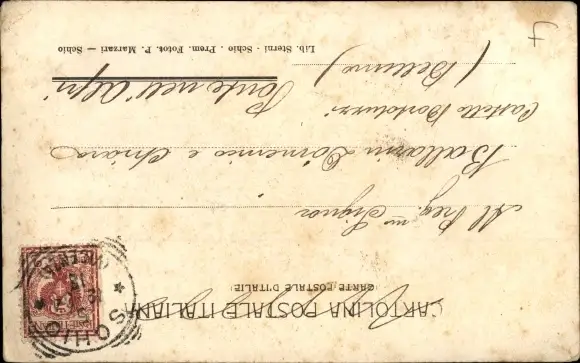 CARTOLINA POSTALE ITALIANA
CARTE POSTALE D'ITALIE
Al Preg.mo Signor
Ballarin Domenico e Chiara
Castello Bortoluzzi
Ponte nell'Alpi
(Belluno)
Lib. Sterni - Schio . Prem. Fotos. P. Marzari — Schio
SCHIO